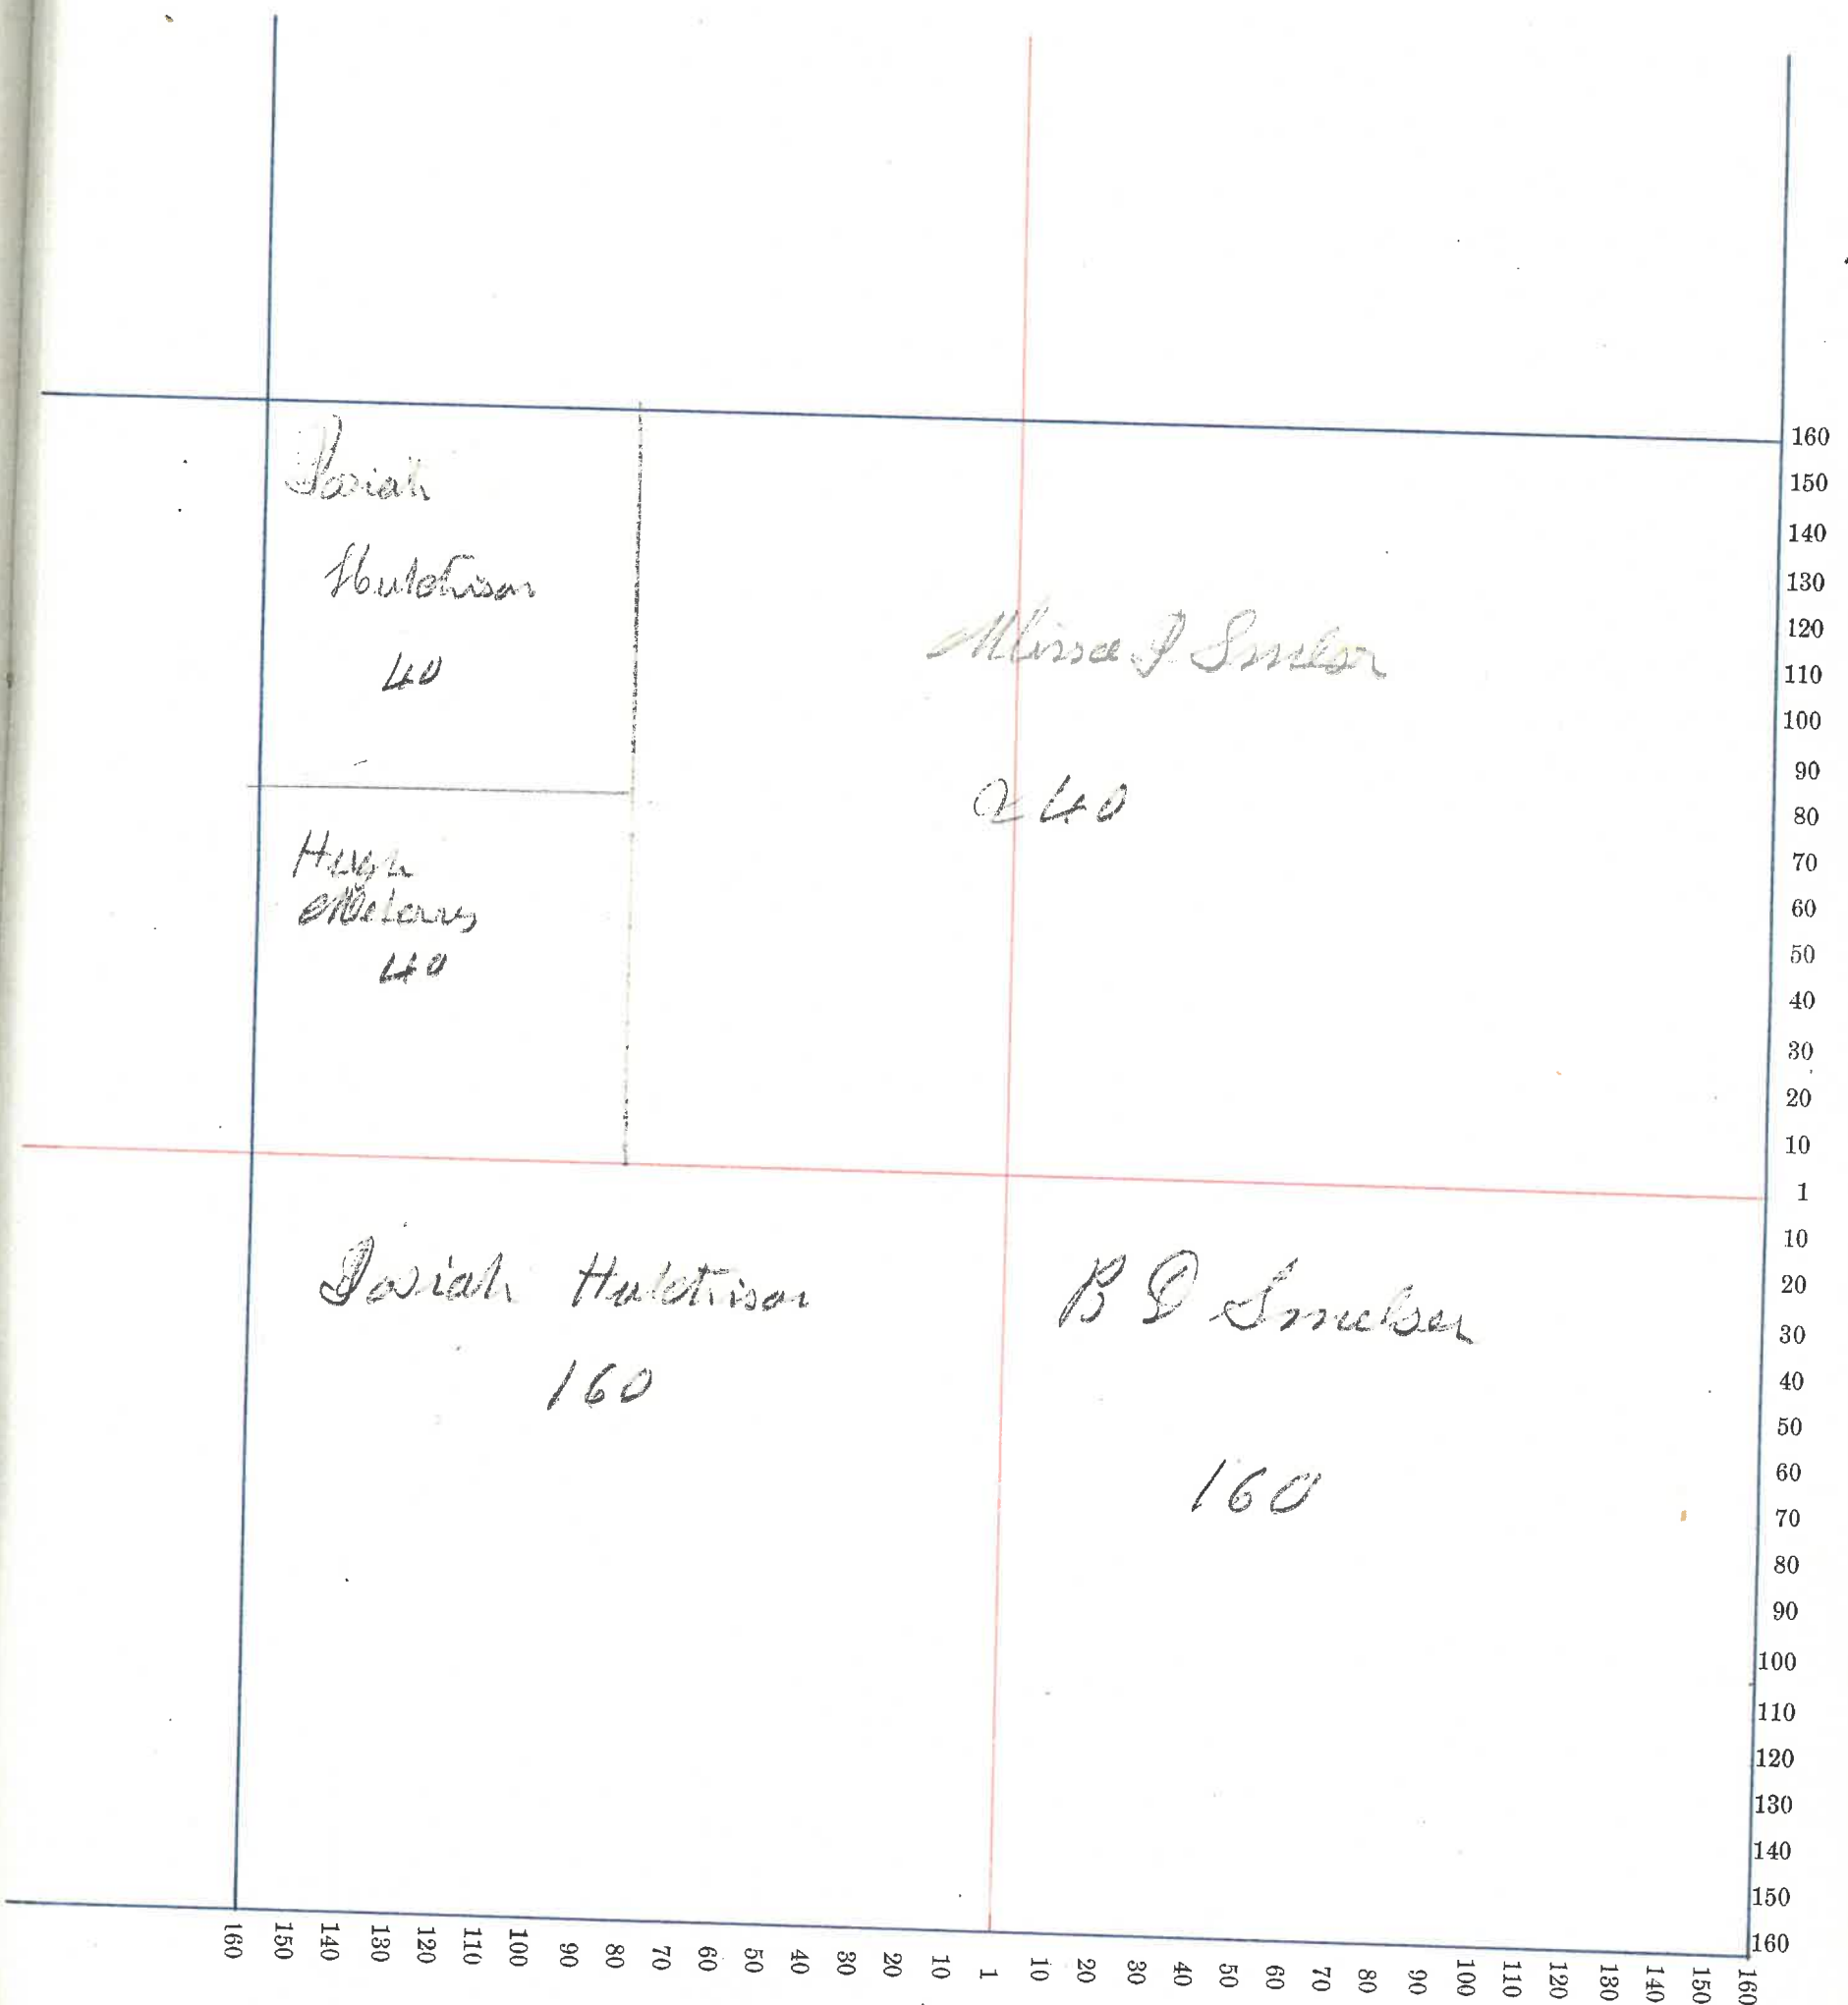 Josiah
Hutchison
40
Hugh
40
Smelser
240
Josiah Hutchison
160
B D Smelser
160
160
150
140
130
120
110
100
90
80
70
60
50
40
30
20
10
1
10
20
30
40
50
60
70
80
90
100
110
120
130
140
150
160
160 150 140 130 120 110 100 90 80 70 60 50 40 30 20 10 1 10 20 30 40 50 60 70 80 90 100 110 120 130 140 150 160